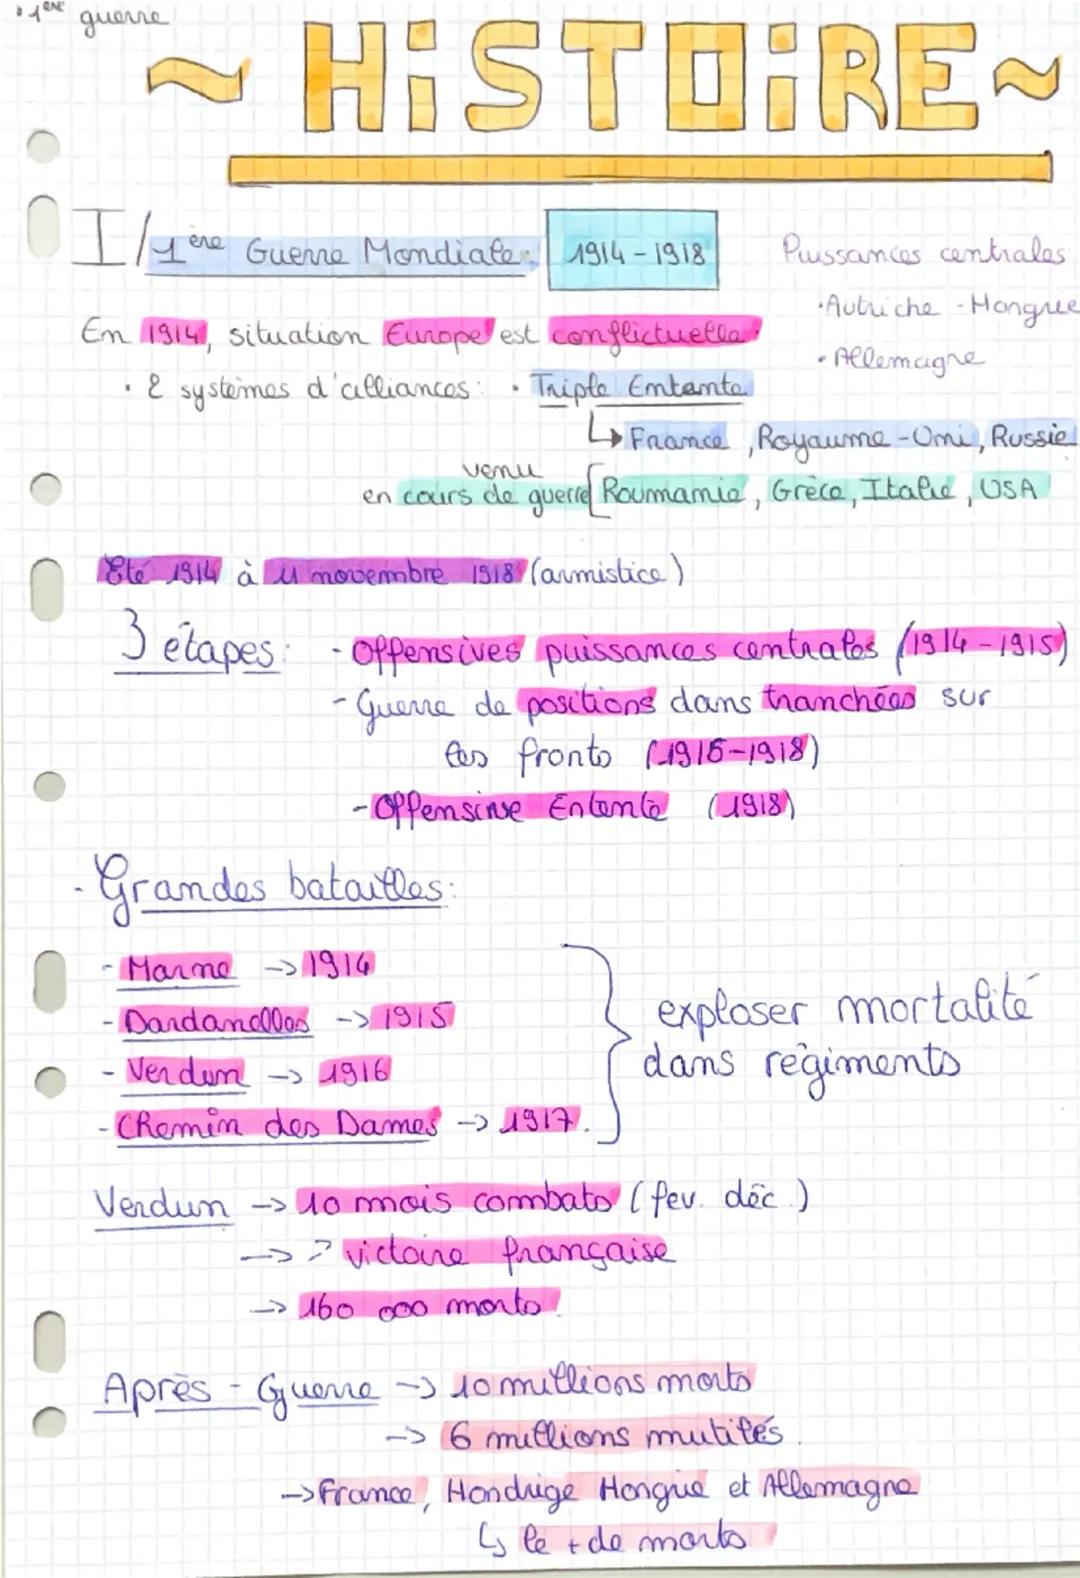 • 1ère guerre
~ HiSTOiRE ~
I/ 1ère Guerre Mondiale: 1914-1918
Puissances centrales
• Autriche - Hongrie
• Allemagne
En 1914, situation Europe est conflictuelle.
• 2 systèmes d'alliances: • Triple Entente
↳ France, Royaume-Uni, Russie
venu
en cours de guerre [Roumanie, Grèce, Italie, USA
Eté 1914 à 11 novembre 1918 (armistice)
3 étapes: - Offensives puissances centrales (1914-1915)
- Guerre de positions dans tranchées sur
les fronts (1915-1918)
- Offensive Entente (1918)
• Grandes batailles:
- Marne -> 1914
- Dardanelles -> 1915
- Verdun -> 1916
- Chemin des Dames -> 1917.
exploser mortalité
dans régiments
Verdun -> 10 mois combats (fev. déc.)
-> ? victoire française
-> 160 000 morts.
Après-Guerre -> 10 millions morts
-> 6 millions mutilés.
-> France, Hongrie et Allemagne
↳ le + de morts